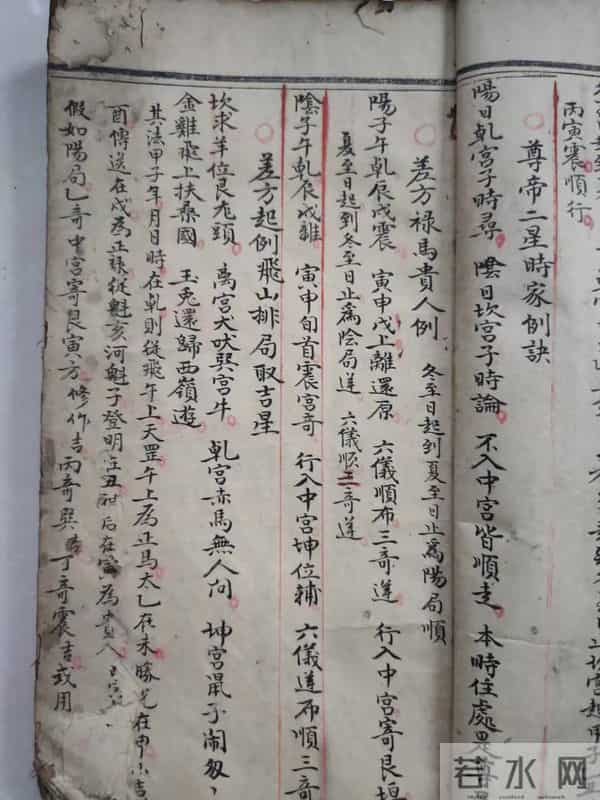 丙寅震順行
尊帝二星時家例訣
陽日乹宫子時尋 陰日坎宫子時論 不入中宫皆順走 本時住處是
差方禄馬貴人例 冬至日起到夏至日止為陽局順
夏至日起到冬至日止為陰局逆 六儀順三竒逆
陽子午乹辰戌震 寅申戊上離還原 六儀順布三竒逆 行入中宫寄艮垣
陰子午乹辰戌離 寅申旬首震宫竒 行入中宫坤位輔 六儀逆布順三竒
差方起例飛山排局取吉星
坎求羊位艮尨頭 离宫犬吠巽宫牛 乹宫赤馬無人问 坤宫鼠子闹匆匆
金雞飛上扶桑國 玉兎還歸西嶺遊
其法甲子年月日時在乹則從飛午上天罡午上為正馬太乙在未勝光在申小吉
酉傳送在戌為正禄從魁亥河魁子登明在丑神后在寅為貴人
假如陽局乙竒中宫寄艮寅方修作吉丙竒巽吉丁竒震吉或用
若水网